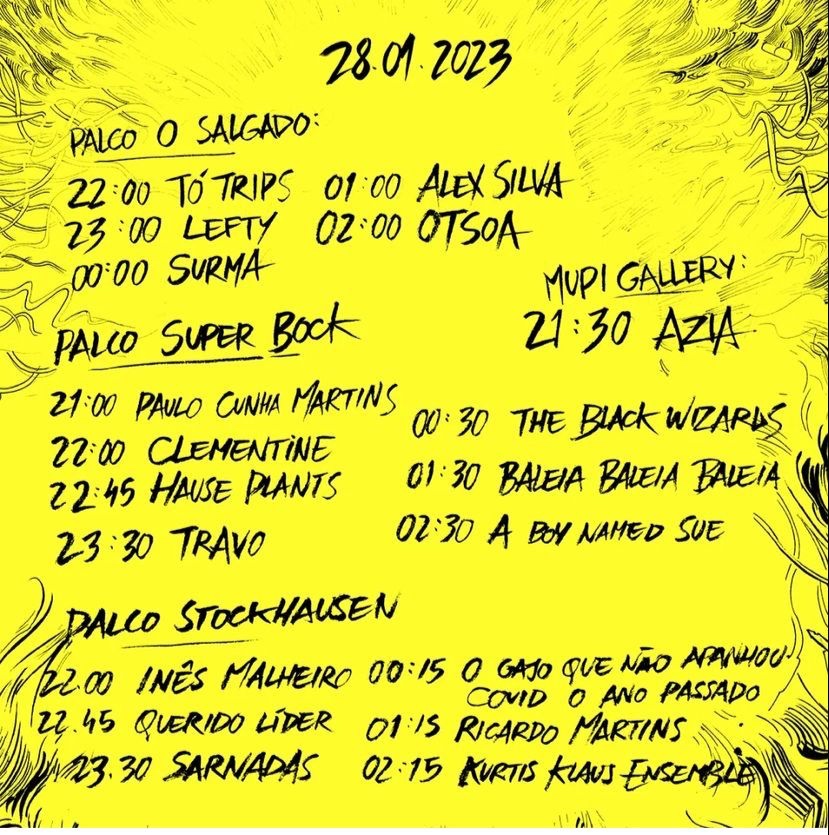 28.01.2023
PALCO O SALGADO:
22:00 TÓ TRIPS
23:00 LEFTY
00:00 SURMA
01:00 ALEX SILVA
02:00 OTSOA
MUPI GALLERY:
21:30 AZIA
PALCO SUPER BOCK
21:00 PAULO CUNHA MARTINS
22:00 CLEMENTINE
22:45 HAUSE PLANTS
23:30 TRAVO
00:30 THE BLACK WIZARDS
01:30 BALEIA BALEIA BALEIA
02:30 A BOY NAMED SUE
PALCO STOCKHAUSEN
22.00 INÊS MALHEIRO
22.45 QUERIDO LÍDER
23.30 SARNADAS
00:15 O GAJO QUE NÃO APANHOU
COVID O ANO PASSADO
01:15 RICARDO MARTINS
02:15 KURTIS KLAUS ENSEMBLE